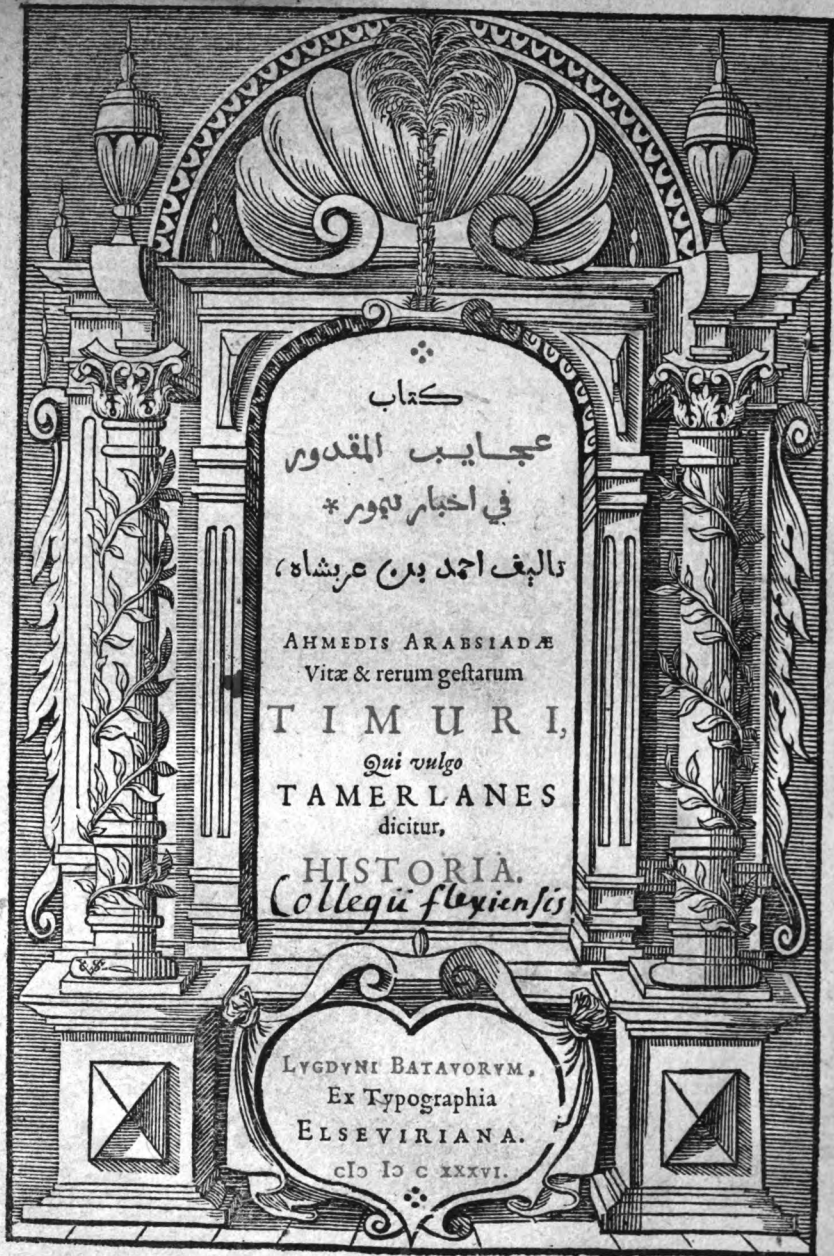 كتاب
عجايب المقدور
في اخبار تيمور *
تاليف احمد بن عربشاه،
AHMEDIS ARABSIADÆ
Vitæ & rerum geſtarum
TIMURI,
Qui vulgo
TAMERLANES
dicitur,
HISTORIA.
Collegii flexiensis
LVGDVNI BATAVORVM,
Ex Typographia
ELSEVIRIANA.
cIↄ Iↄ c xxxvi.